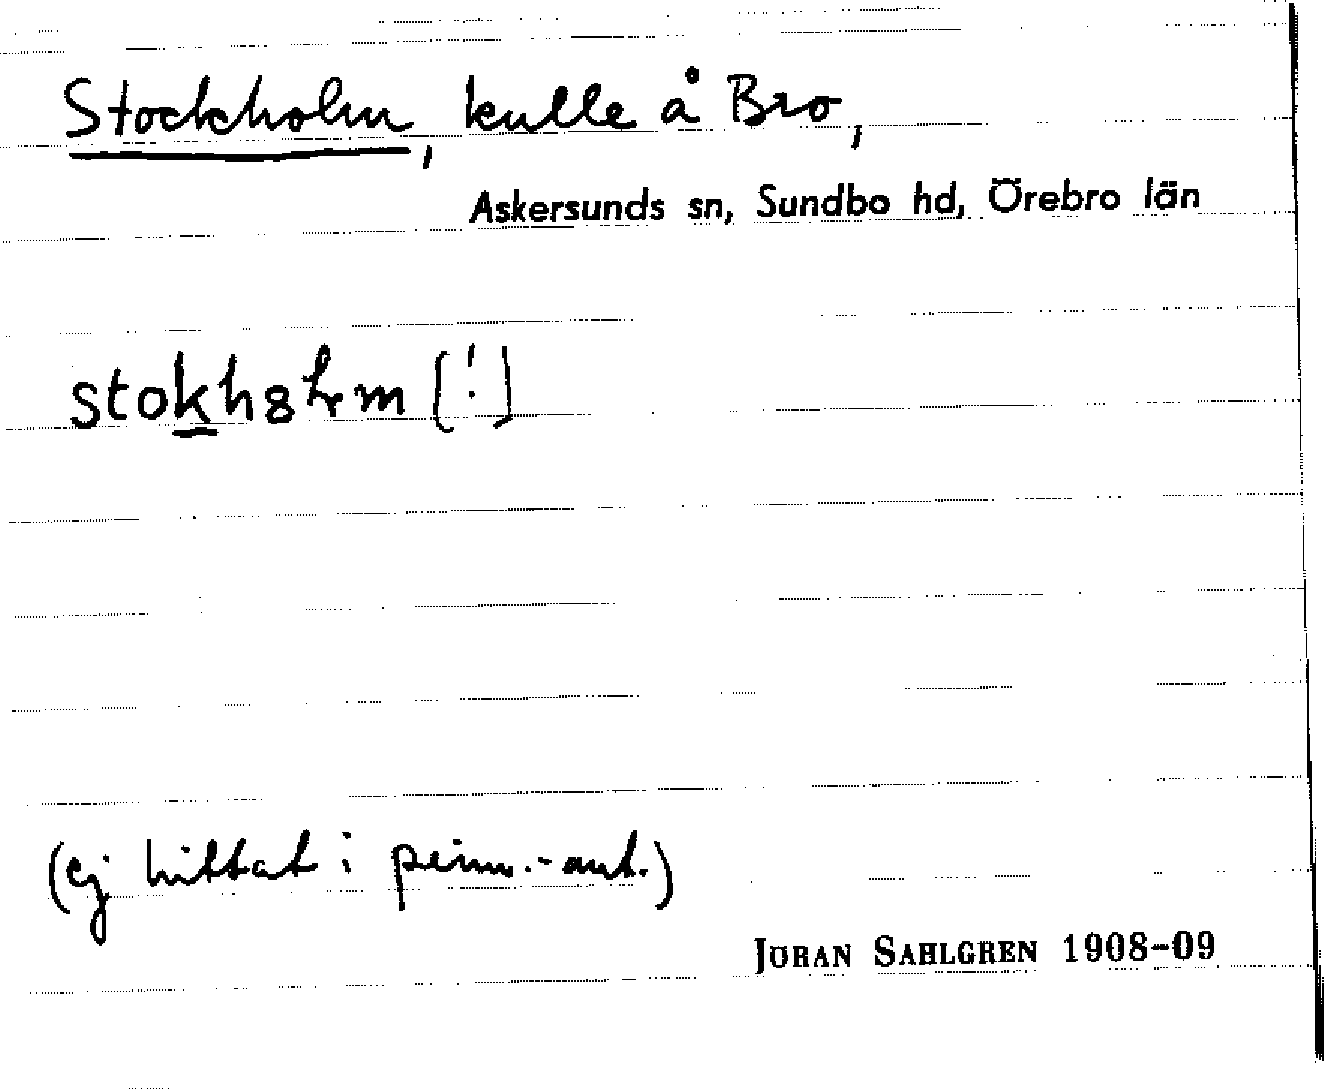 Stockholm, kulle å Bro,
Askersunds sn, Sundbo hd, Örebro län
[!]
(ej hittat i
JÖRAN SAHLGREN 1908-09